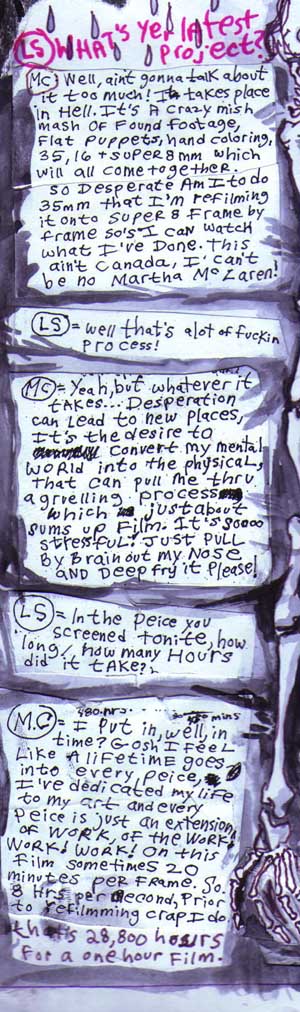 LS WHAT'S YER latest
project?
MC) Well, aint gonna talk about
it too much! It takes place
in Hell. It's a crazy mish
mash of Found footage,
Flat Puppets, hand coloring,
35, 16 + SUPER 8 mm which
will all come together.
So Desperate Am I to do
35mm that I'm refilming
it onto SUPER 8 Frame by
frame so's I can watch
what I've Done. This
ain't Canada, I can't
be no Martha McLaren!
LS = well that's alot of fuckin
Process!
MC = Yeah, but whatever it
takes... Desperation
can lead to new places,
It's the desire to
convert my mental
world into the physical,
that can pull me thru
a gruelling process
which justabout
sums up Film. It's soooo
stressful! Just PULL
By Brain out my Nose
AND Deep fry it Please!
LS = In the Peice you
screened tonite, how
long/ how many Hours
did it take?
M.C = I Put in, well, in
480 hrs. mins
time? Gosh I feel
Like A lifetime goes
into every peice,
I've dedicated my life
to my art and every
Peice is just an extension
of work, of the work!
Work! Work! On this
film sometimes 20
minutes per frame. So.
8 Hrs per second, Prior
to refilmming crap I do
that's 28,800 hours
for a one hour Film.